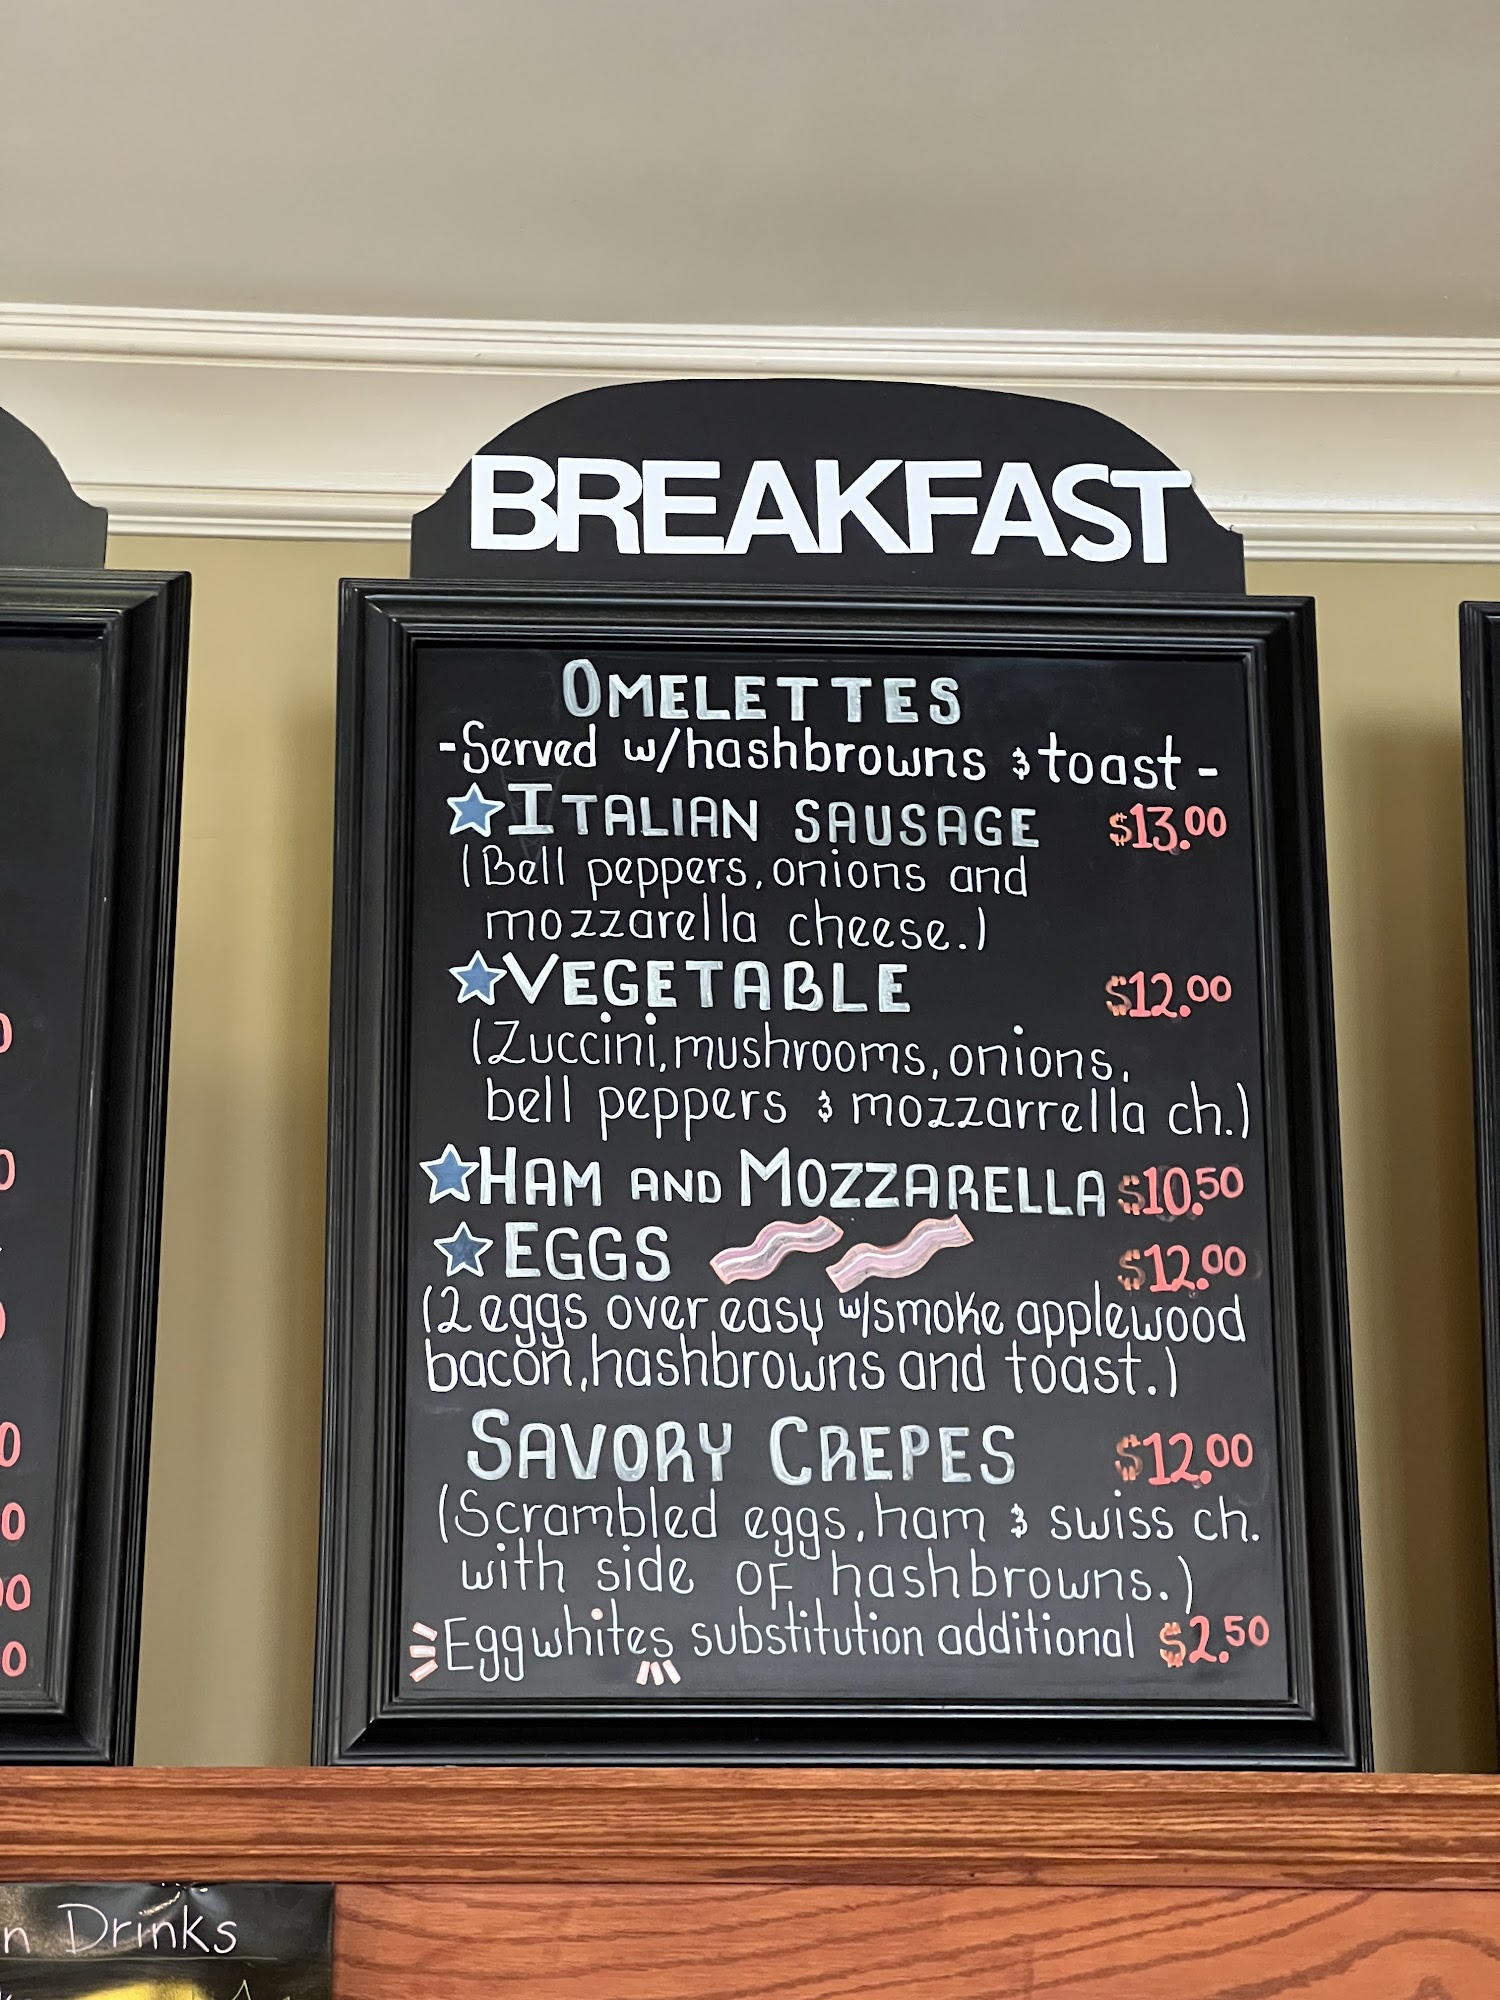 BREAKFAST
OMELETTES
-Served w/hashbrowns & toast-
ITALIAN SAUSAGE $13.00
(Bell peppers, onions and
mozzarella cheese.)
VEGETABLE $12.00
(Zuccini, mushrooms, onions,
bell peppers & mozzarrella ch.)
HAM AND MOZZARELLA $10.50
EGGS $12.00
(2 eggs over easy w/smoke applewood
bacon, hashbrowns and toast.)
SAVORY CREPES $12.00
(Scrambled eggs, ham & swiss ch.
with side of hashbrowns.)
Egg whites substitution additional $2.50
Drinks